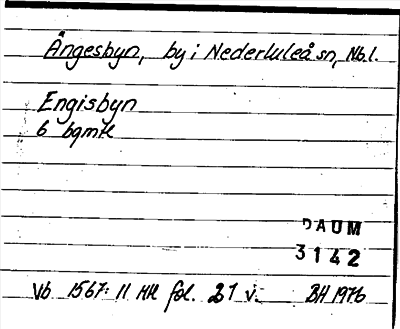 Ängesbyn, by i Nederluleå sn, Nb.l.
Engisbyn
6 bqmk
DAUM
3142
Vb 1567: 11 HH fol. 21 v. BH 1976